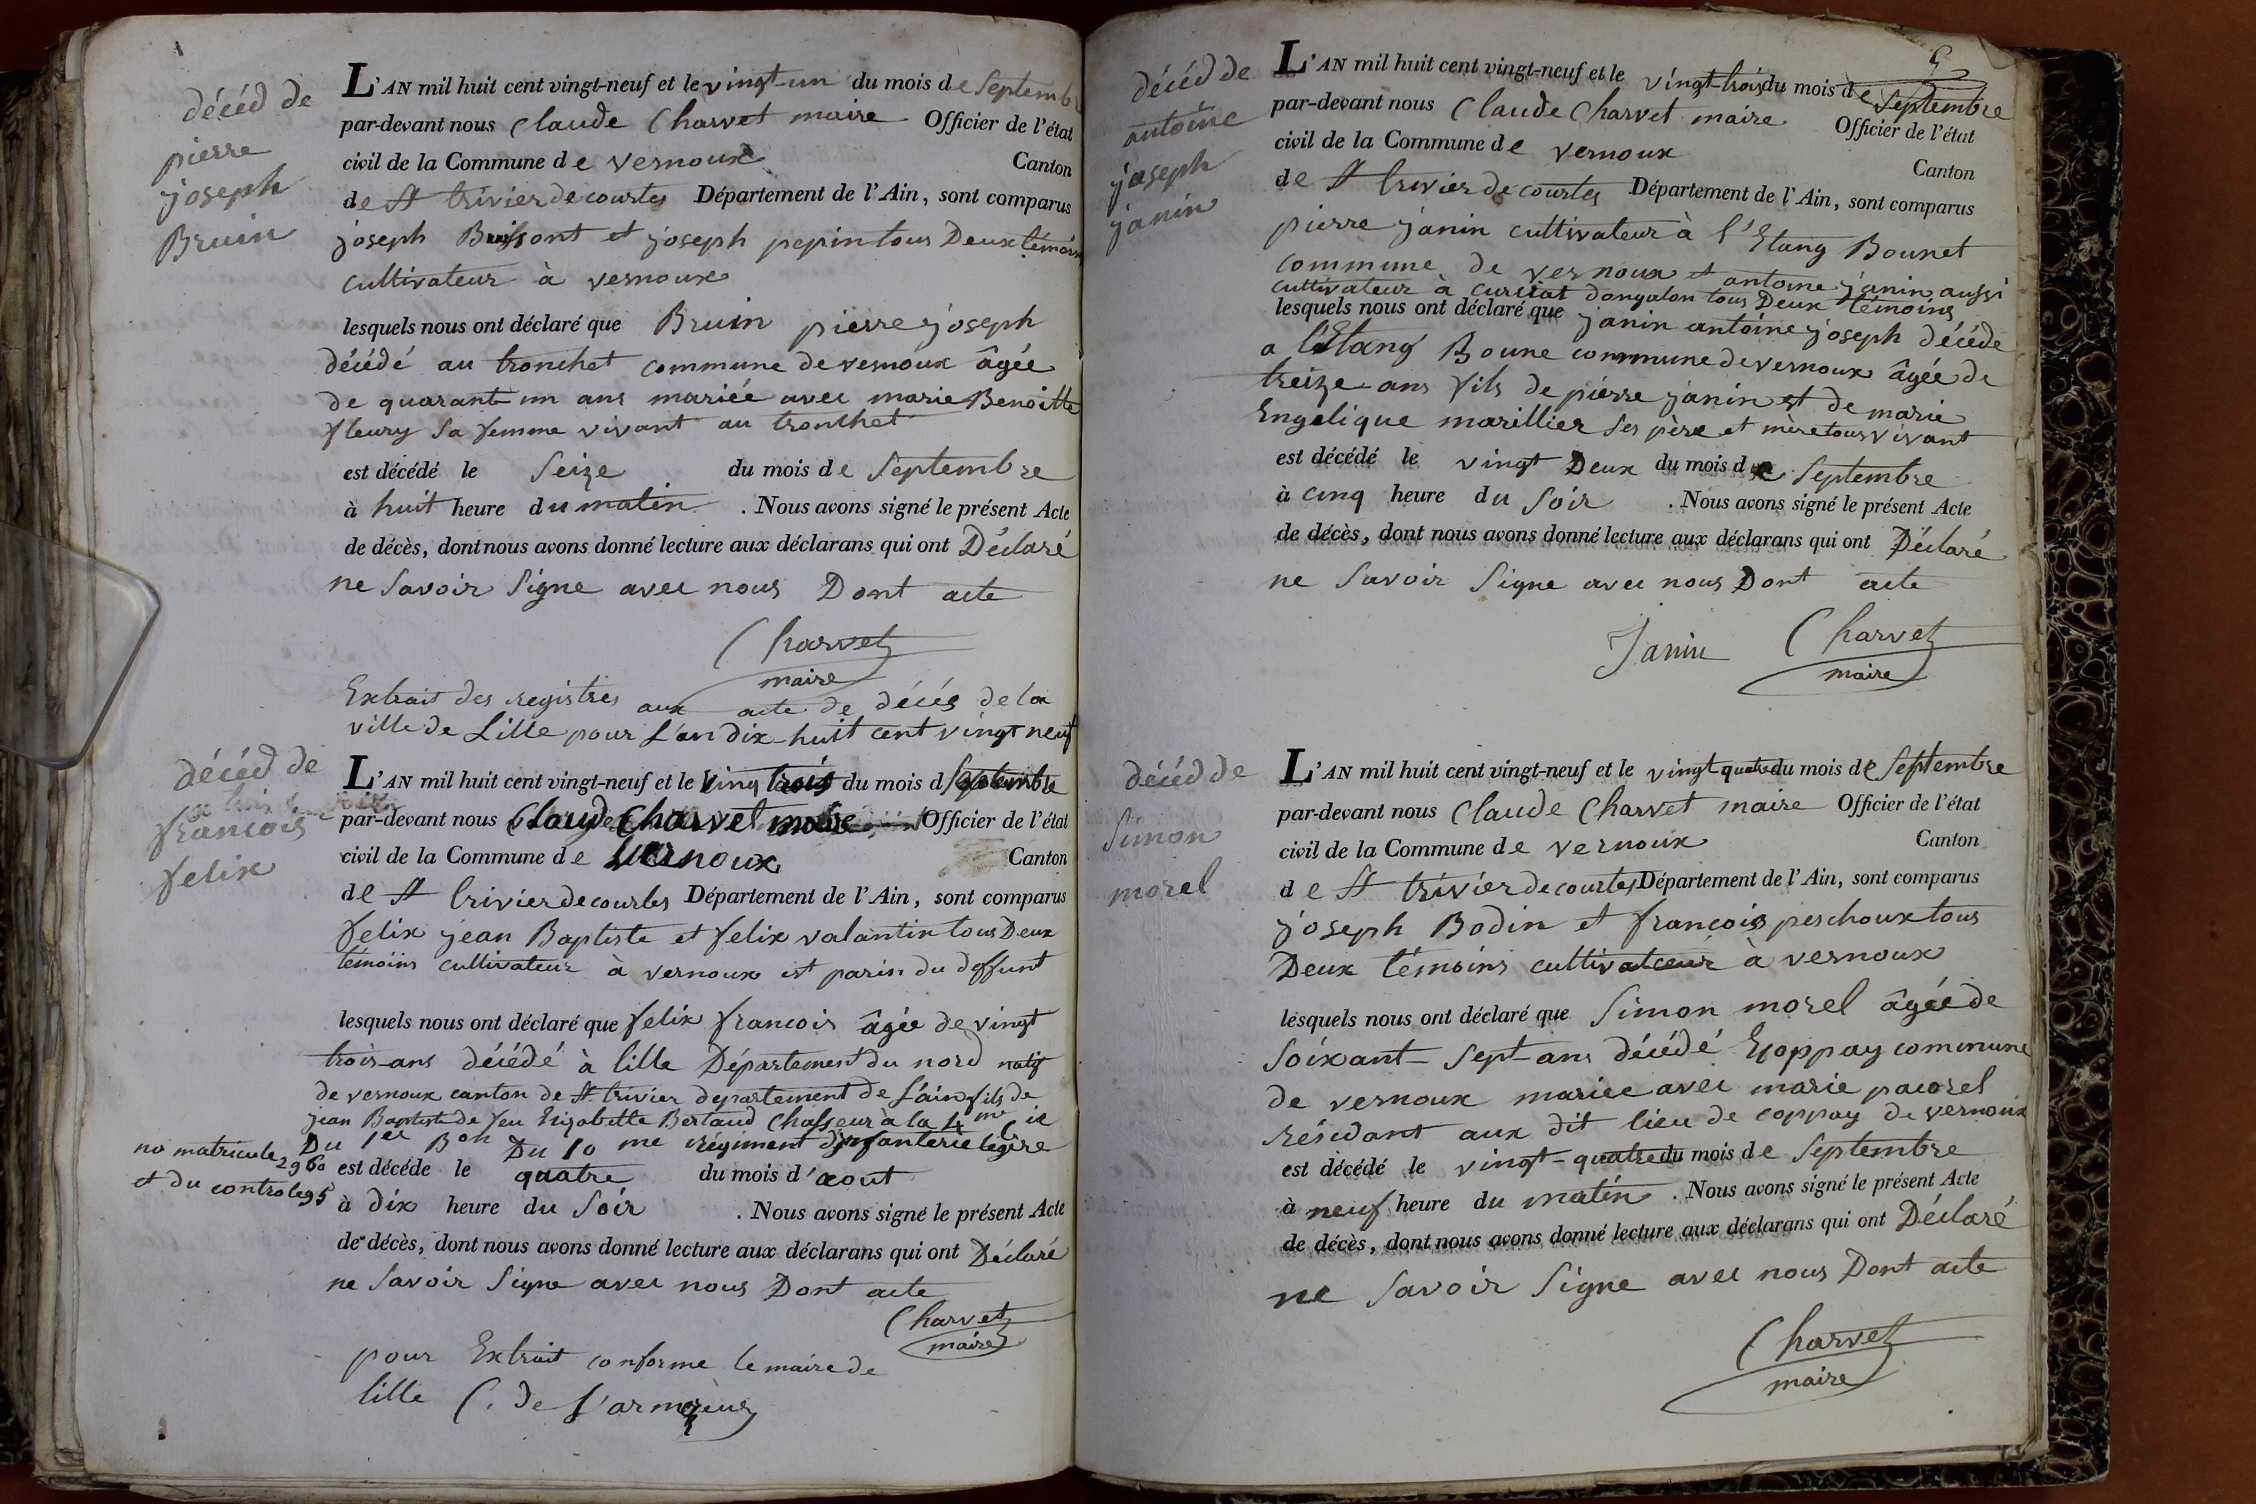 décéd de
pierre
joseph
Bruin
L'AN mil huit cent vingt-neuf et le vingt-un du mois de Septembre
par-devant nous Claude Charvet maire Officier de l'état
civil de la Commune de vernoux Canton
de St trivier de courtes Département de l'Ain, sont comparus
joseph Buissont et joseph pepin tous Deux témoins
cultivateur à vernoux
lesquels nous ont déclaré que Bruin pierre joseph
décédé au tronchet commune de vernoux âgée
de quarant-un ans mariéé avec marie Benoitte
fleury sa femme vivant au tronchet
est décédé le Seize du mois de Septembre
à huit heure du matin . Nous avons signé le présent Acte
de décès, dont nous avons donné lecture aux déclarans qui ont Déclaré
ne Savoir Signe avec nous Dont acte
Charvet
maire
Extrait des registres aux acte de décés de la
ville de Lille pour L'an dix-huit cent vingt neuf
décéd de
francois
felix
L'AN mil huit cent vingt-neuf et le Vingt trois du mois d Septembre
par-devant nous Claude Charvet maire Officier de l'état
civil de la Commune de Vernoux Canton
de St trivier de courtes Département de l'Ain, sont comparus
felix jean Baptiste et felix valantin tous Deux
témoins cultivateur à vernoux est parin du deffunt
lesquels nous ont déclaré que felix francois âgée de vingt
trois-ans décédé à lille Département du nord natif
de vernoux canton de St trivier departement de L'ain fils de
jean Baptiste de feu Elizabette Bertaud Chasseur à la 4me Cie
Du 1er Bon Du 10 me régiment d'infanterie legère
no matricule 2960
et du controle 95
est décéde le quatre du mois d'aout
à dix heure du Soir . Nous avons signé le présent Acte
de décès, dont nous avons donné lecture aux déclarans qui ont Déclaré
ne Savoir Signe avec nous Dont acte
Charvet
maire
pour Extrait conforme le maire de
lille C. De
décéd de
antoine
joseph
janin
L'AN mil huit cent vingt-neuf et le vingt-trois du mois de Septembre
par-devant nous Claude Charvet maire Officier de l'état
civil de la Commune de vernoux Canton
de St trivier de courtes Département de l'Ain, sont comparus
pierre janin cultivateur à l'Etang Bounet
commune de vernoux et antoine janin aussi
cultivateur à curciat dongalon tous Deux témoins
lesquels nous ont déclaré que janin antoine joseph décéde
a l'Etang Boune commune de vernoux âgée de
treize-ans fils de pierre janin et de marie
Engelique marillier ses père et mère tous vivant
est décédé le vingt Deux du mois de Septembre
à cinq heure du Soir . Nous avons signé le présent Acte
de décès, dont nous avons donné lecture aux déclarans qui ont Déclaré
ne Savoir Signe avec nous Dont acte
Janin Charvet
maire
décéd de
Simon
morel
L'AN mil huit cent vingt-neuf et le vingt quatre du mois de Septembre
par-devant nous Claude Charvet maire Officier de l'état
civil de la Commune de vernoux Canton
de St trivier de courtes Département de l'Ain, sont comparus
joseph Bodin et francois peschoux tous
Deux témoins cultivateur à vernoux
lesquels nous ont déclaré que Simon morel âgée de
Soixant-Sept-ans décédé commune
de vernoux mariee avec marie pacorel
résidant aux dit lieu de coppay de vernoux
est décédé le vingt-quatre du mois de Septembre
à neuf heure du matin . Nous avons signé le présent Acte
de décès, dont nous avons donné lecture aux déclarans qui ont Déclaré
ne Savoir Signe avec nous Dont acte
Charvet
maire